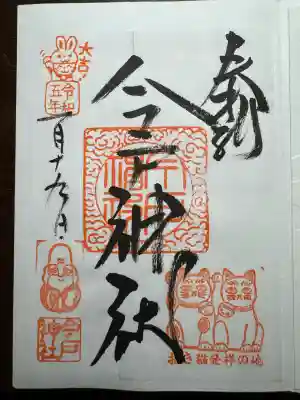 奉拝
今戸神社
大吉
令和
五年
一月十九日
今戸
神社
招き猫発祥の地